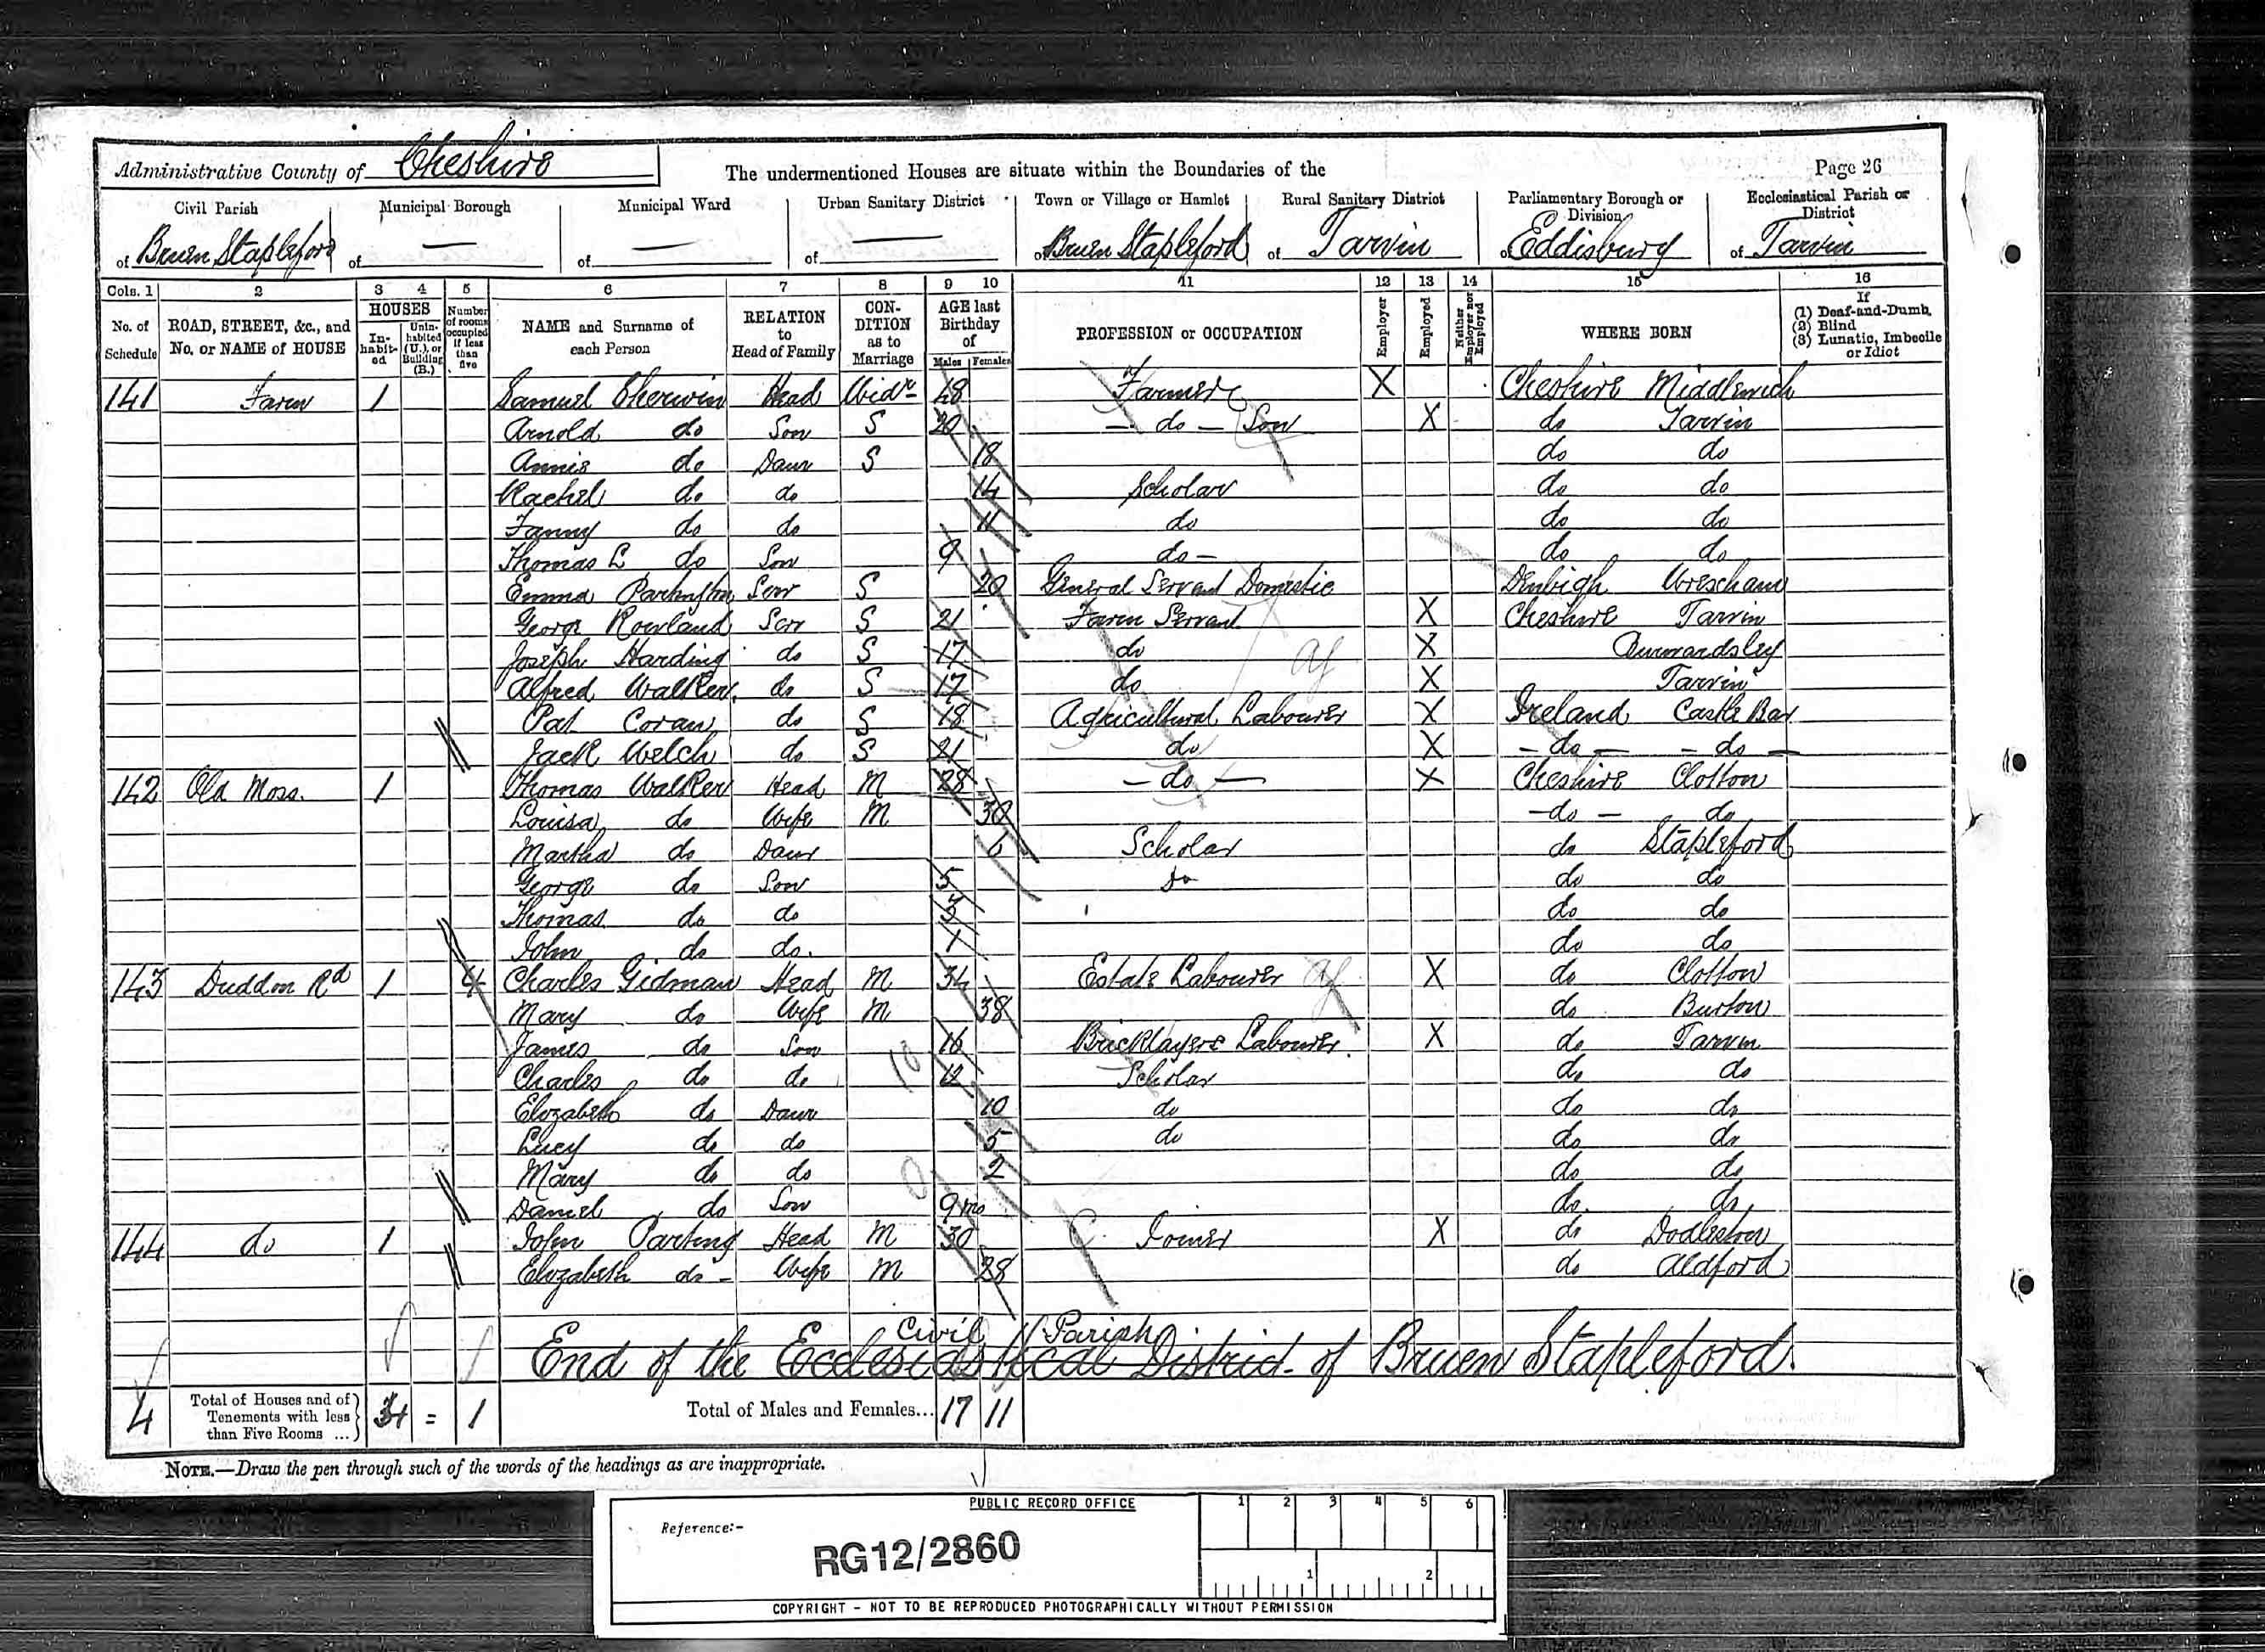 Administrative County of Cheshire The undermentioned Houses are situate within the Boundaries of the Page 26
Civil Parish Municipal Borough Municipal Ward Urban Sanitary District Town or Village or Hamlet Rural Sanitary District Parliamentary Borough or Division Ecclesiastical Parish or District
of Bruen Stapleford of — of — of — of Bruen Stapleford of Tarvin of Eddisbury of Tarvin
Cols. 1 2 3 4 5 6 7 8 9 10 11 12 13 14 15 16
No. of Schedule ROAD, STREET, &c., and No. or NAME of HOUSE HOUSES In-habit-ed Unin-habited (U.), or Building (B.) Number of rooms occupied if less than five NAME and Surname of each Person RELATION to Head of Family CON-DITION as to Marriage AGE last Birthday of Males Females PROFESSION or OCCUPATION Employer Employed Neither Employer nor Employed WHERE BORN If (1) Deaf-and-Dumb (2) Blind (3) Lunatic, Imbecile or Idiot
141 Farm 1 Samuel Sherwin Head Widr 48 Farmer X Cheshire Middlewich
Arnold do Son S 20 — do — Son X do Tarvin
Annie do Daur S 18 do do
Rachel do do 14 Scholar do do
Fanny do do 11 do do do
Thomas L do Son 9 do — do do
Emma Partington Serv S 20 General Servant Domestic Denbigh Wrexham
George Rowland Serv S 21 Farm Servant X Cheshire Tarvin
Joseph Harding do S 17 do X Burwardsley
Alfred Walker do S 17 do X Tarvin
Pat Coran do S 18 Agricultural Labourer X Ireland Castle Bar
Jack Welch do S 21 do X — do — — do —
142 Old Moss. 1 Thomas Walker Head M 28 — do — X Cheshire Clotton
Louisa do Wife M 30 — do — do
Martha do Daur 6 Scholar do Stapleford
George do Son 5 Do do do
Thomas do do 3 do do
John do do. 1 do do
143 Duddon Rd 1 4 Charles Gidman Head M 34 Estate Labourer Ag X do Clotton
Mary do Wife M 38 do Burton
James do Son 16 Bricklayers Labourer. X do Tarvin
Charles do do 12 Scholar do do
Elizabeth do Daur 10 do do do
Lucy do do 5 do do do
Mary do do 2 do do
Daniel do Son 9 mo do. do
144 do 1 John Parting Head M 30 Joiner X do Dodleston
Elizabeth do — Wife M 28 do Aldford
Civil Parish
End of the Ecclesiastical District of Bruen Stapleford.
4 Total of Houses and of Tenements with less than Five Rooms ... 4 = 1 Total of Males and Females... 17 11
NOTE.—Draw the pen through such of the words of the headings as are inappropriate.
PUBLIC RECORD OFFICE 1 2 3 4 5 6
Reference:-
RG12/2860
1 2
COPYRIGHT - NOT TO BE REPRODUCED PHOTOGRAPHICALLY WITHOUT PERMISSION